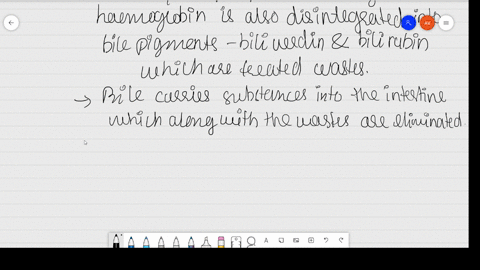 haemoglobin is also disintegrated into
bile pigments - biliverdin & bilirubin
which are treated wastes.
→ Bile carries substances into the intestine
which along with the wastes are eliminated